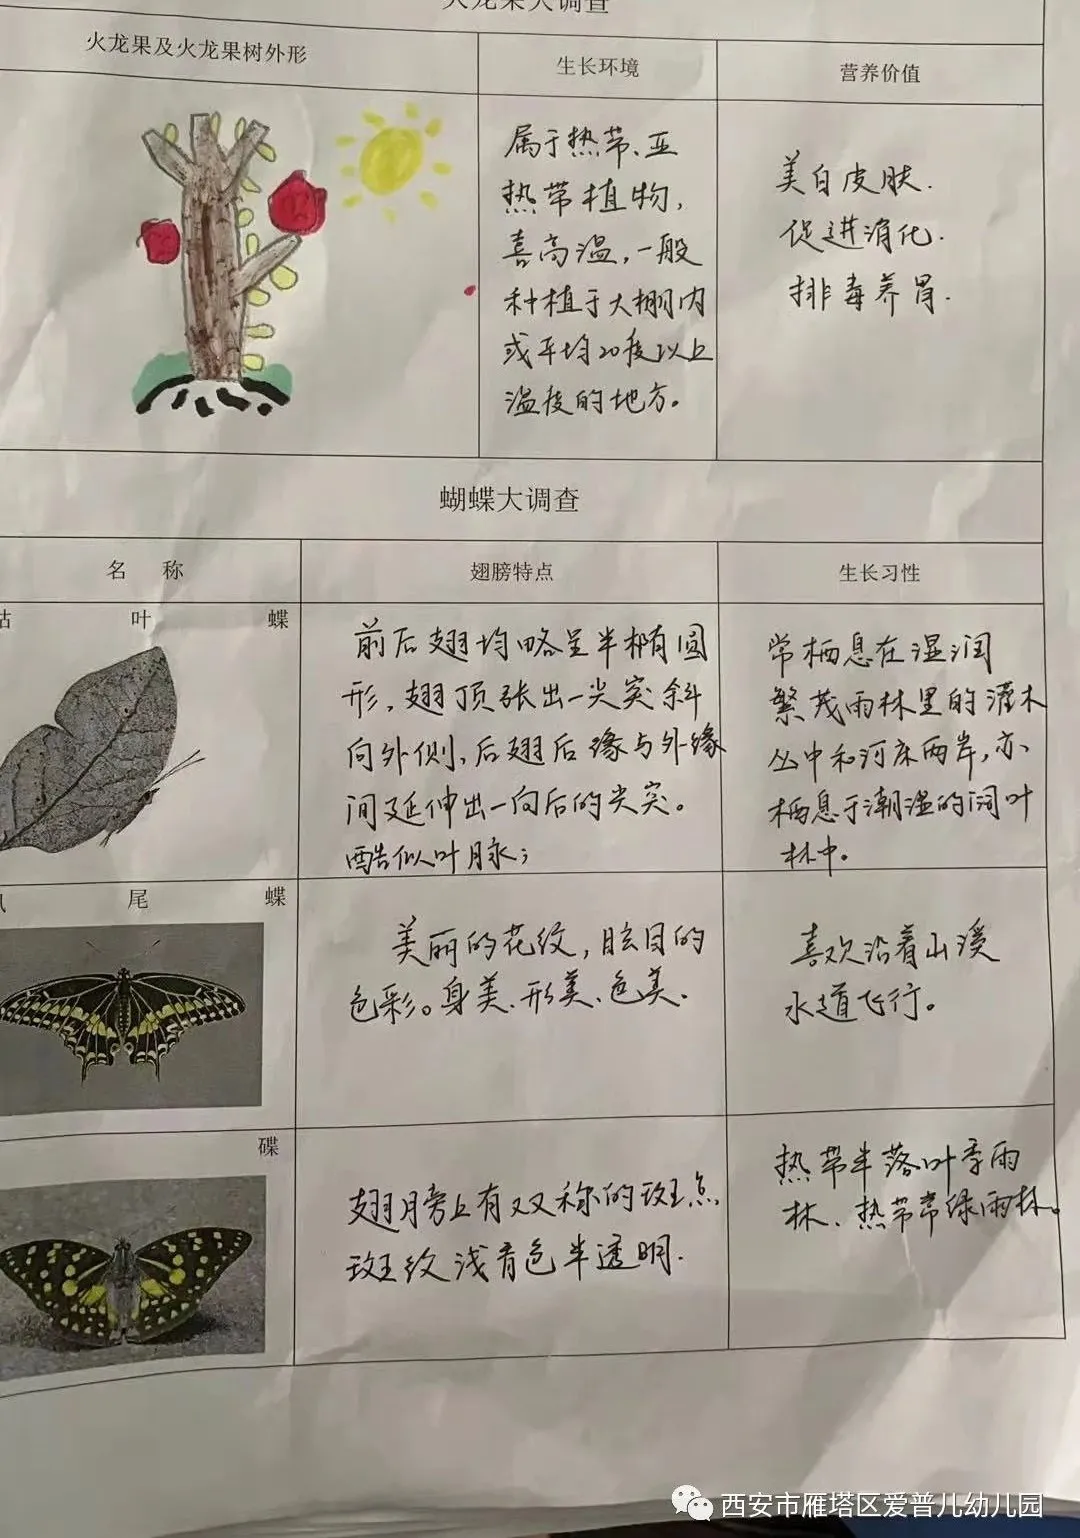 火龙果大调查
火龙果及火龙果树外形
生长环境
营养价值
属于热带、亚
热带植物,
喜高温,一般
种植于大棚内
或平均20度以上
温度的地方。
美白皮肤.
促进消化.
排毒养胃.
蝴蝶大调查
名 称
翅膀特点
生长习性
枯 叶 蝶
前后翅均略呈半椭圆
形,翅顶张出一尖突斜
向外侧,后翅后缘与外缘
间延伸出一向后的尖突。
酷似叶脉;
常栖息在湿润
繁茂雨林里的灌木
丛中和河床两岸,亦
栖息于潮湿的阔叶
林中。
凤 尾 蝶
美丽的花纹,眩目的
色彩。身美、形美、色美.
喜欢沿着山溪
水道飞行。
碟
翅膀上有对称的斑点
斑纹浅青色半透明.
热带半落叶季雨
林、热带常绿雨林。
西安市雁塔区爱普儿幼儿园